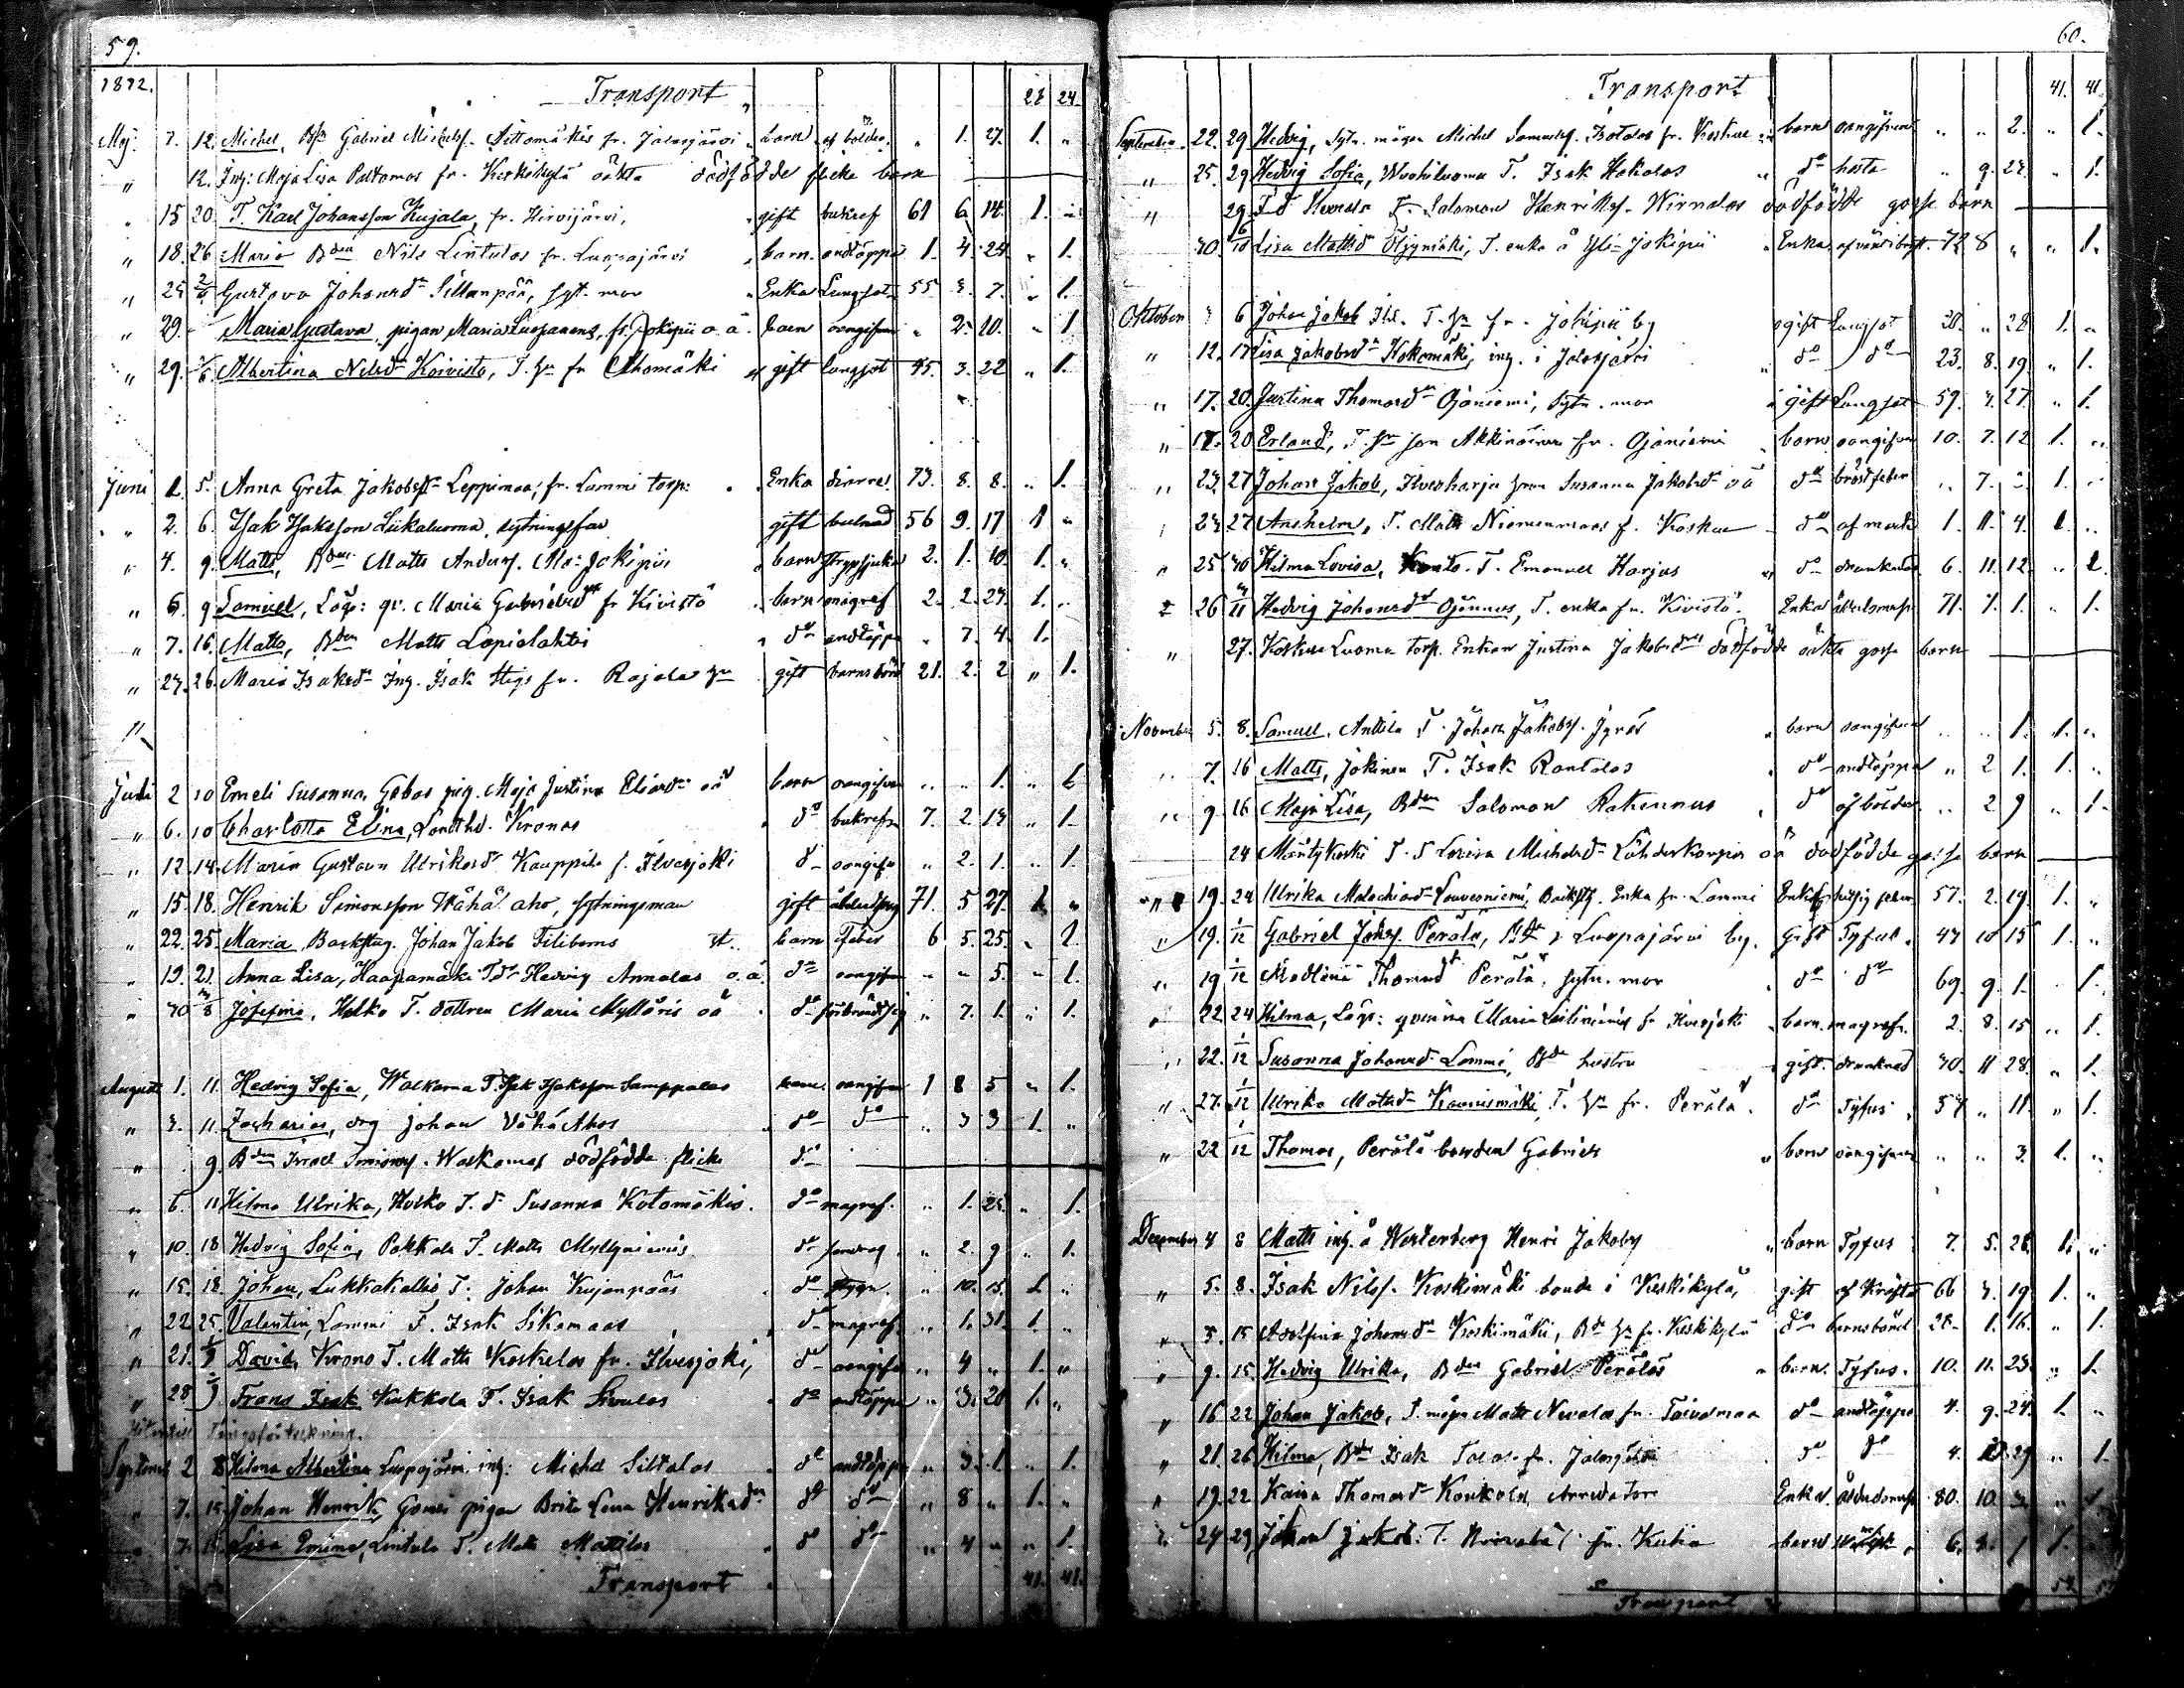 59.
1872.
Transport 28 24
Maj 7. 12. Michel, Bds Gabriel Michelss. Sillomäkis fr. Jalasjärvi barn af bölder " 1. 27. 1. "
" 12. Ing: Maja Lisa Paltomas fr. Keskikylä oäkta dödfödde flicke barn
" 15 20. T. Karl Johansson Kujala, fr. Hirvijärvi, gift bukref 61 6 14. 1. "
" 18. 26 Maria Bden Nils Lintulas fr. Luopajärvi barn. andtäppa 1. 4. 24 " 1.
" 25 2/6 Gustava Johansdr Sillanpää, syt. mor Enka Lungsot 55 3. 7. " 1.
" 29. Maria Gustava, pigan Maria Luopanens, fr. Jokipii o. ä. barn oangifven " 2. 10. " 1
" 29. 2/6 Albertina Nilsdr Koivisto, T. hu fr Ahomäki gift lungsot 45. 3. 22 " 1.
Juni 1. 5. Anna Greta Jakobsdr Leppimaa, fr. Lammi torp: Enka diarré 73. 8. 8. " 1.
" 2. 6. Isak Isaksson Liikaluoma, sytningsfar gift 56 9. 17 1 "
" 4. 9. Matts, Bden Matts Anderss. Ala-Jokipii barn Strypsjuka 2. 1. 10. 1. "
" 6. 9 Samuel, Lösa: qv. Maria Gabrielsdr fr Kivistö barn magref 2. 2. 27. 1. "
" 7. 16. Matts, Bden Matts Lapiolahtis do andtäppa " 7. 4. 1.
" 27. 26. Maria Isaksdr Ing. Isak Stigs fr. Rajala hu gift barnsbörd 21. 2. 2 " 1.
Juli 2 10 Emeli Susanna, Gebas pig. Maja Justina Eliasdr oä barn oangifven " " 1. " 1
" 6. 10 Charlotta Elina, Landthd. Kronas do bukrefn 7. 2. 13 " 1.
" 12 14. Maria Gustava Ulriksdr Kauppila f. Ilvesjoki do oangifv " 2. 1. " 1.
" 15. 18. Henrik Simonsson Wähä aho, sytningsman gift ålderdomssv 71. 5 27. 1. "
" 22. 25. Maria, Backstug. Johan Jakob Filiboms st. barn Feber 6 5. 25. " 1.
" 19. 21. Anna Lisa, Haapamäki Tdr Hedvig Annalas o. ä. do oangifven " " 5. " 1.
" 30 3/8 Josefina, Helko T. dottren Maria Mylläris oä do förbrändt sig " 7. 1. " 1.
Augusti 1. 11. Hedvig Sofia, Walkama T. Isak Isaksson Samppalas barn. oangifven 1 8 5 " 1.
" 3. 11. Zacharias, drg Johan Vähä Ahos do do " 3 3 1. "
" 9. Bden Israel Simonss. Walkamas dödfödde flicke do
" 6. 11 Hilma Ulrika, Helko T. d. Susanna Kotomäkis. do magref. " 1. 25. " 1.
" 10. 18 Hedvig Sofia, Pakkala T. Matts Myllyniemis do " 2. 9 " 1.
" 15. 18. Johan, Lukkakallio T. Johan Kujanpääs do " 10. 15. 1. "
" 22 25. Valentin, Lammi T. Isak Sikamaas do magref. " 1. 31. 1. "
" 21. 1/9 David, Krono T. Matts Koskelas fr. Ilvesjoki, do oangifv " 4 " 1. "
" 28 Frans Isak Kukkola T. Isak Sivulas do andtäppa " 3. 20 1. "
September 2 8 Hilma Albertina Luopajärvi ing: Michel Siltalas do andtäppa " 3. 1. " 1.
" 7. 15. Johan Henrik, Gomei pigan Brita Lena Henriksdr do do " 8 " 1. "
" 7. 15. Lisa Emina, Lintula T. Matts Mattilas do do " 4 " " 1.
Transport 41. 41.
60.
Transport 41. 41.
September 22. 29 Hedvig, Sytn. mågen Michel Samuelss. Isotalos fr. Koskue barn oangifven " " 2. " 1.
" 25. 29 Hedvig Sofia, Wuohiluoma T. Isak Hakalas do hosta " 9. 27 " 1.
" 29. T. Salomon Henrikss. Wirnalas dödfödde gosse barn
30. 6/10 Lisa Mattsdr Öljymäki, T. enka å Yli-Jokipii Enka 72 8 " " 1.
October 6 Johan Jakob T. hn fr. Jokipii by ogift Lungsot 28. " 28 1. "
" 12. 17 Lisa Jakobsdr Kokomäki, ing. i Jalasjärvi do do 23. 8. 19. " 1.
" 17. 20. Justina Thomasdr Ojaniemi, Sytn. mor gift Lungsot 59. 7. 27. " 1.
" 18. 20 Erland, T. hu son fr. Ojaniemi barn oangifven 10. 7. 12 1. "
" 23. 27 Johan Jakob, Ilvesharju hmn Susanna Jakobsdr oä do bröstfeber " 7. 2. 1. "
" 23. 27 Anshelm, T. Matts Niemenmaas f. Koskue do af mask 1. 11. 4. 1. "
" 25 30 Hilma Lovisa, T. Emanuel Harjus do drunknad 6. 11. 12. " 1.
" 26 3/11 Hedvig Johansdr Ojännus, T. enka fr. Kivistö. Enka ålderdomssv 71. 7. 1. " 1.
" 27. Koskue Luoma torp. Enkan Justina Jakobsdrs dödfödde oäkta gosse barn
November 5. 8. Samuel, Anttila T. Johan Jakobss. Jyräs barn oangifven " " 1. 1. "
" 7. 16 Matts, Jokinen T. Isak Rantalas do andtäppa " 2 1. 1. "
" 9. 16 Maja Lisa, Bden Salomon Rakennus do af bölder " 2 9 " 1.
24 Mäntykoski T. d. Lovisa Michelsdr Lähdeskorpis oä dödfödde gosse barn
" 19. 24 Ulrika Malachiasdr Louvesniemi, Backstg. Enka fr. Lammi Enka hetsig feber 57. 2. 19. 1. "
" 19. 1/12 Gabriel Johss. Perälä, Bde i Luopajärvi by. Gift Tyfus. 47 10 15 1. "
" 19 1/12 Madlena Thomasdr Perälä, sytn. mor do do 69. 9. 1. " 1.
" 22 24 Hilma, Lösa: qvinna Maria Leiliniemis fr Ilvesjoki barn. magref. 2. 8. 15 " 1.
" 22. 1/12 Susanna Johansdr Lammi, Bds hustru gift. drunknad 30. 11 28. " 1.
" 27. 1/12 Ulrika Matsdr Kaunismäki, T. hu fr. Perälä. do Tyfus 57 " 11. " 1.
" 22 1/12 Thomas, Perälä bonden Gabriels barn oangifven " " 3. 1. "
December 4 8 Matts ing. å Westerberg Henri Jakobss barn Tyfus 7. 5. 26. 1. "
" 5. 8. Isak Nilss. Koskimäki bonde i Keskikylä, gift af Kräfta 66 3. 19 1. "
" 5. 15 Adolfina Johansdr Koskimäki, Bde hu fr. Keskikylä do barnsbörd 28. 1. 16. " 1.
" 9. 15. Hedvig Ulrika, Bden Gabriel Peräläs barn. Tyfus. 10. 11. 23. " 1.
" 16 22 Johan Jakob, T. mågen Matts Nevalas fr. Taivalmaa do andtäppa 4. 9. 24. 1. "
" 21. 26 Hilma, Bde Isak Talas fr. Jalasjärvi do do 4. 29 " 1.
" 19. 22 Kaisa Thomasdr Koukola, Enka. ålderdomssv 80. 10. " 1
" 24 29 Johan Jakob: T. fr. barn 6. 1 1.
Transport